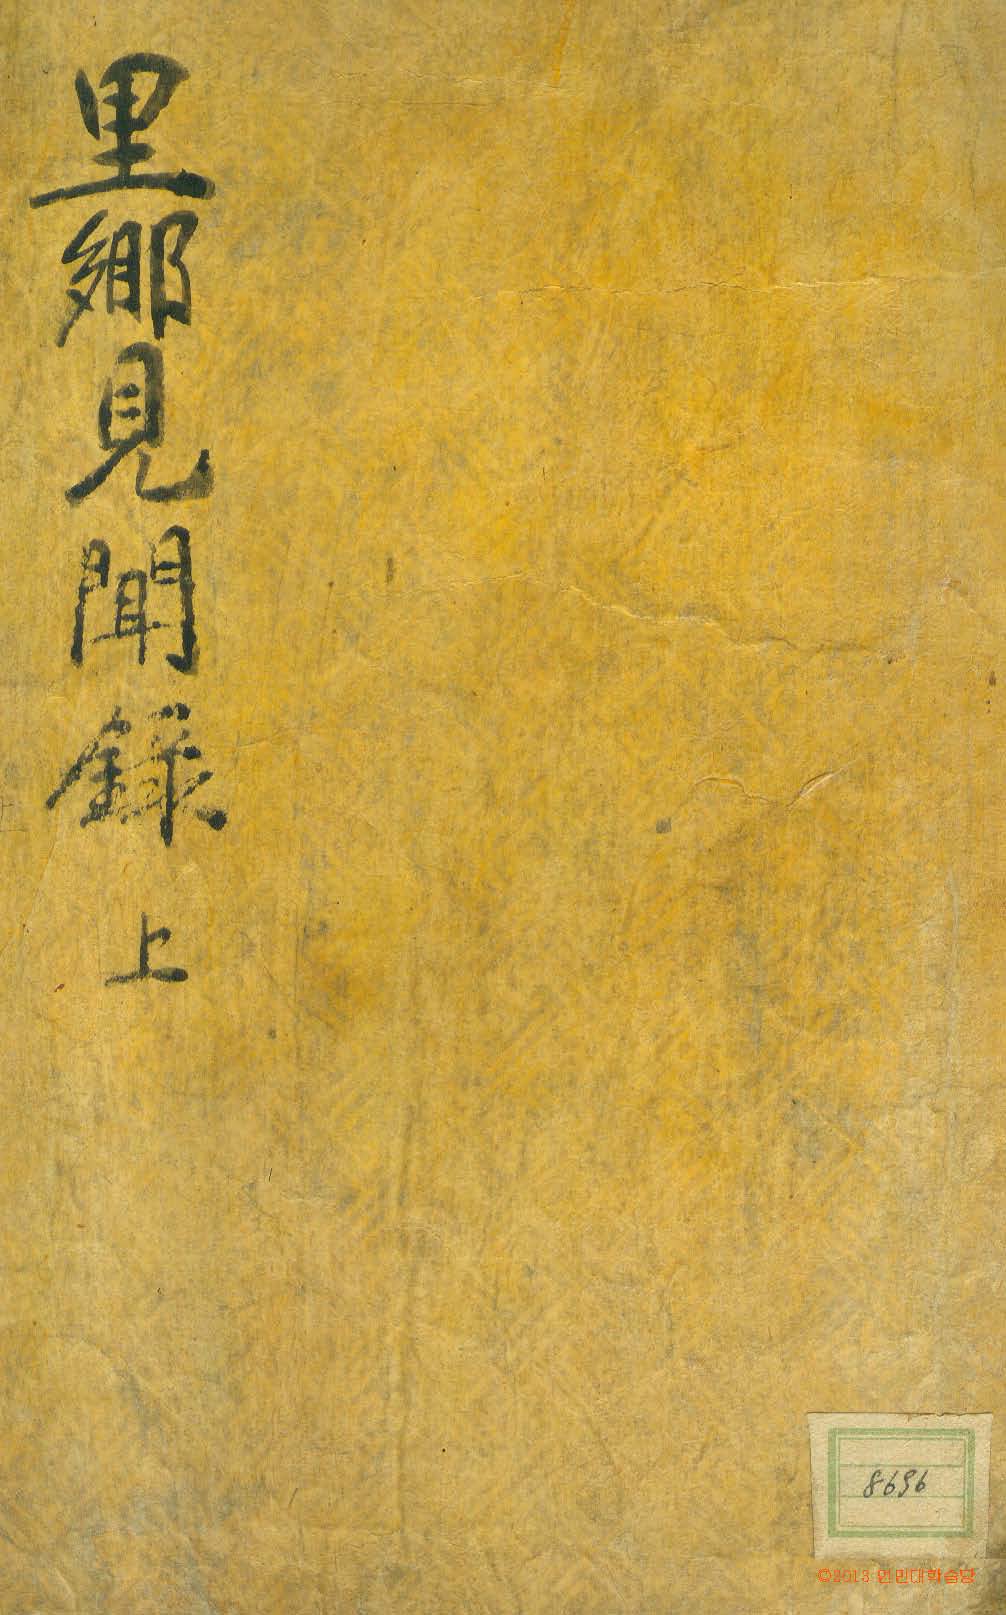 里鄕見聞錄 上
8696
©2013 인민대학습당